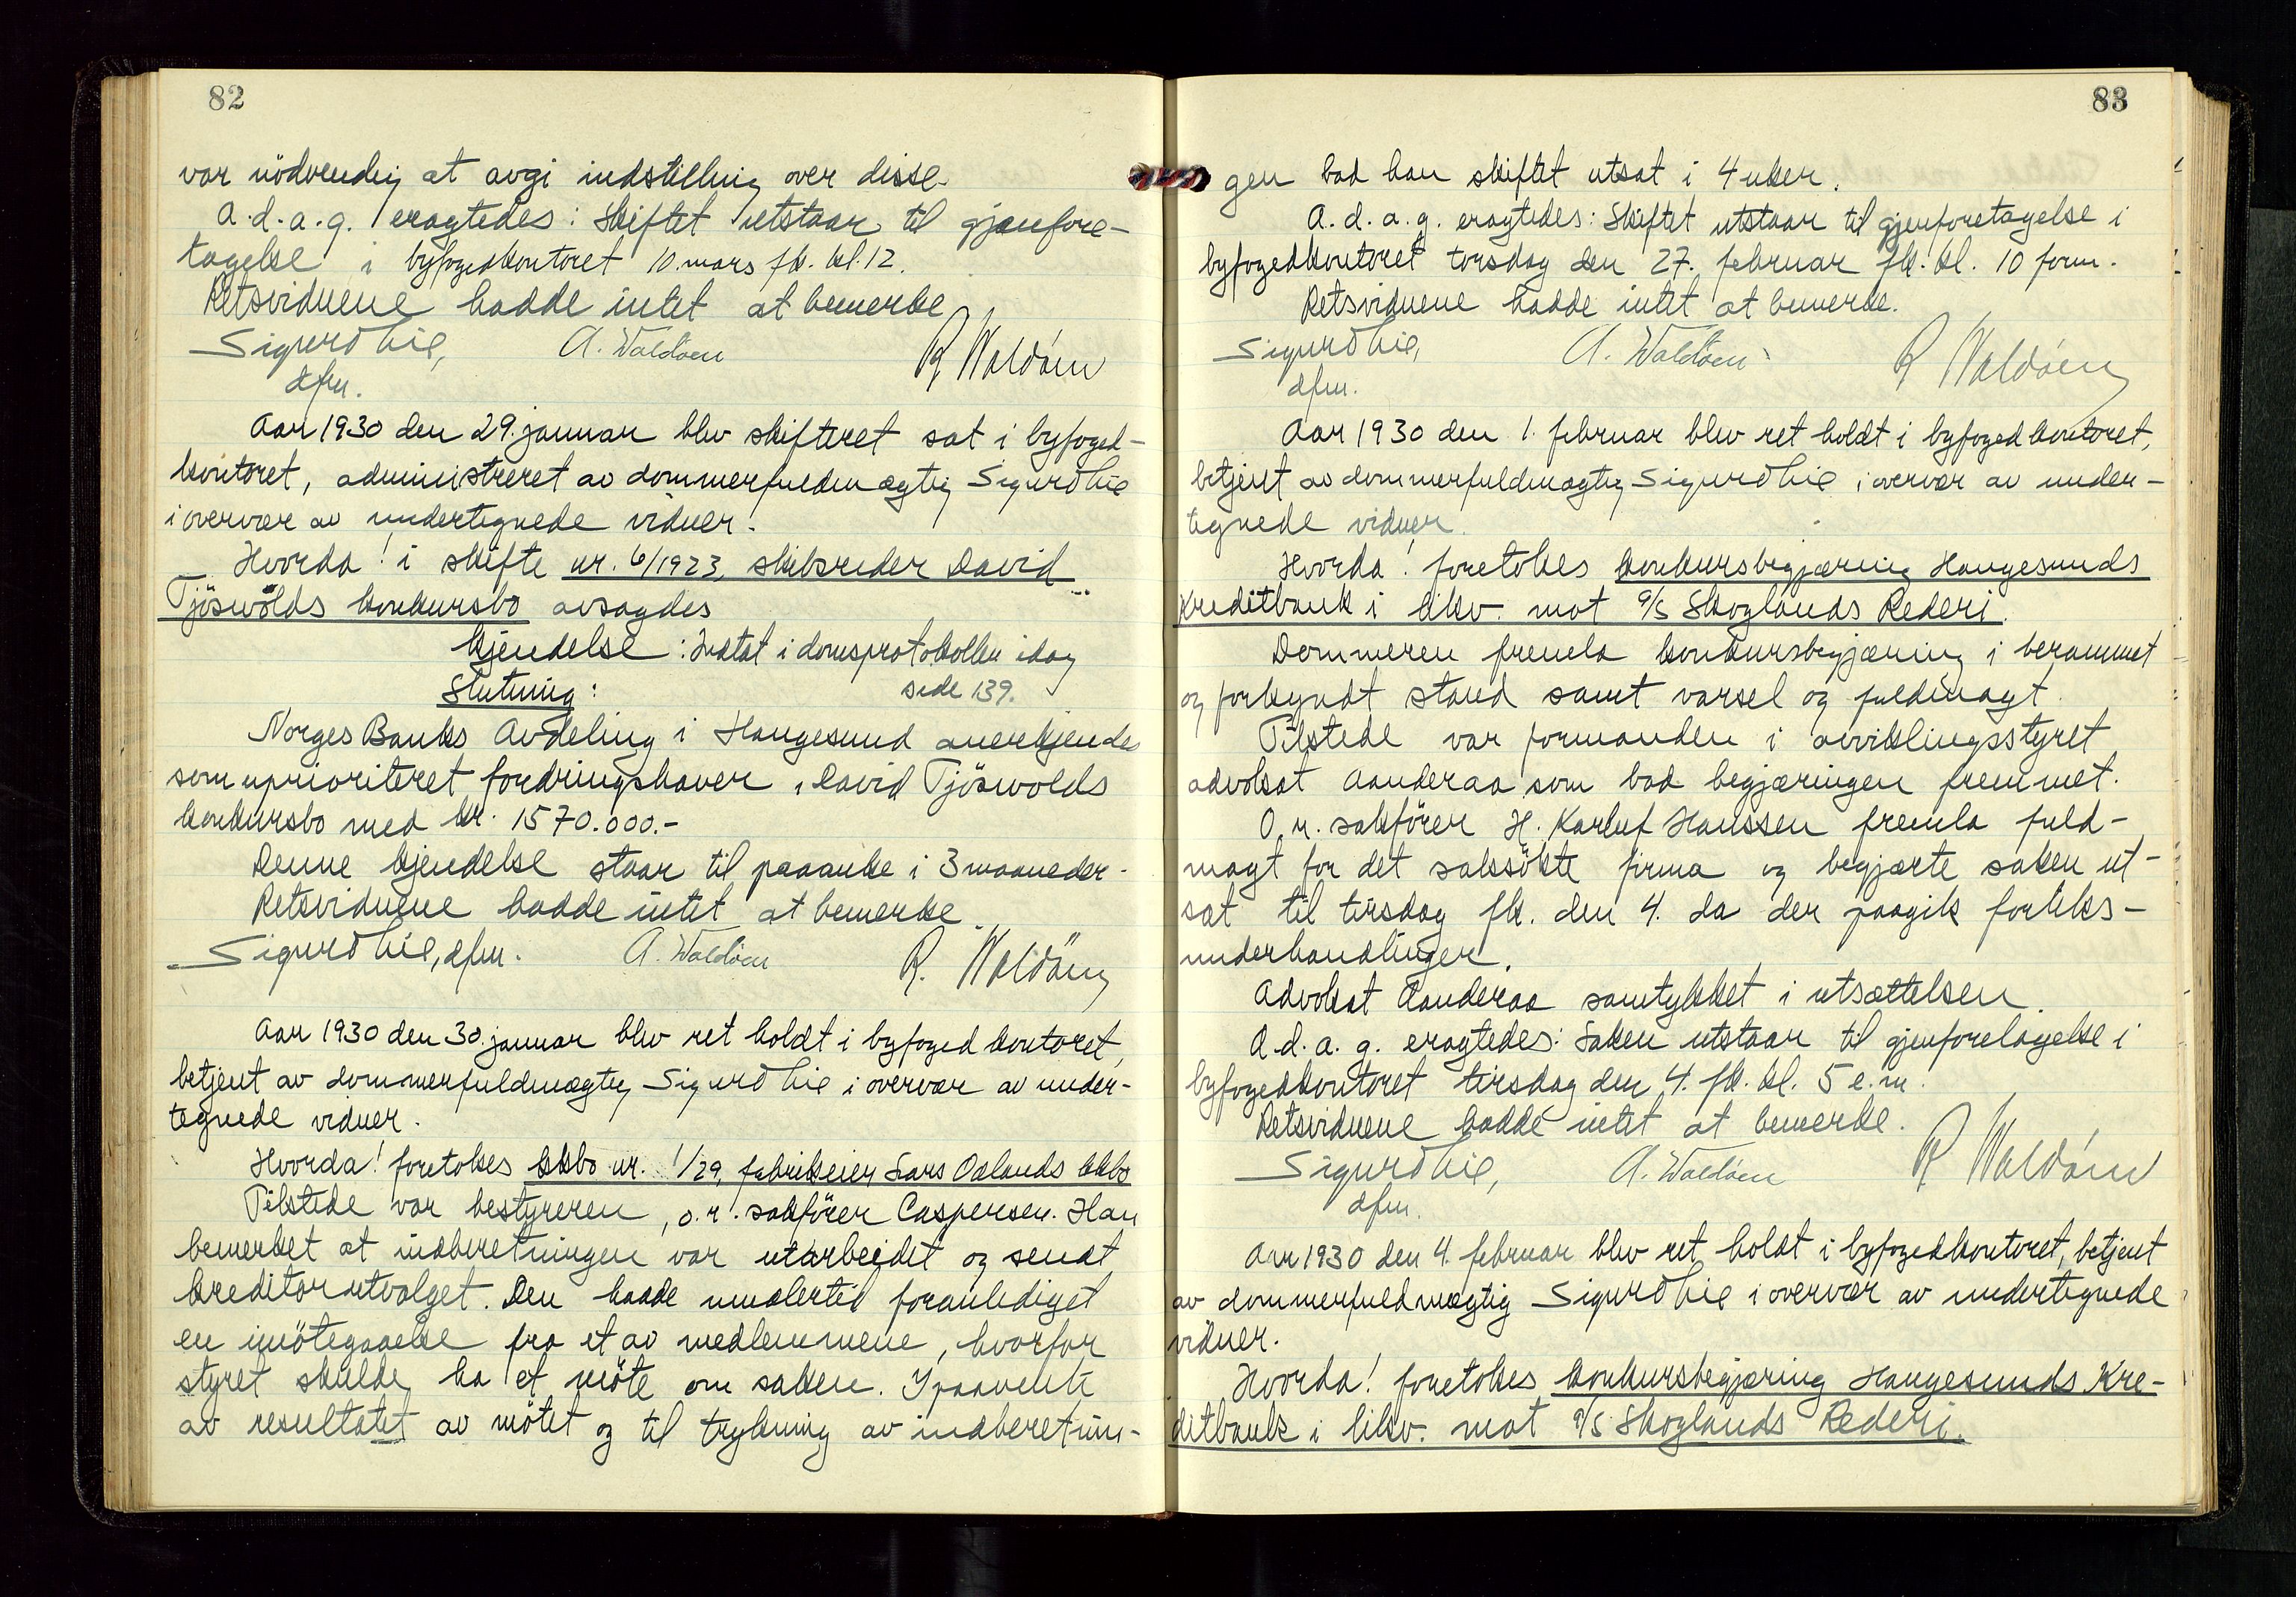 82
var nödvendig at avgi indstilling over disse.
A.d.a.g. eragtedes: Skiftet utstaar til gjenfore-
tagelse i byfogedkontoret 10. mars fk. kl. 12.
Retsvidnene hadde intet at bemerke
Sigurd Lie, A. Waldöen R Waldöen
dfm.
Aar 1930 den 29. januar blev skifteret sat i byfoged-
kontoret, administreret av dommerfuldmægtig Sigurd Lie
i overvær av undertegnede vidner.
Hvorda! i skifte nr. 6/1923, skibsreder David
Tjöswolds konkursbo avsagdes
kjendelse: Indtat i domsprotokollen idag
side 139.
Slutning:
Norges Banks Avdeling i Haugesund anerkjendes
som uprioriteret fordringshaver i David Tjöswolds
konkursbo med kr. 1570.000.-
Denne kjendelse staar til paaanke i 3 maaneder.
Retsvidnene hadde intet at bemerke.
Sigurd Lie, dfm. A. Waldöen R. Waldöen
Aar 1930 den 30. januar blev ret holdt i byfogedkontoret,
betjent av dommerfuldmægtig Sigurd Lie i overvær av under-
tegnede vidner.
Hvorda! foretokes kksbo nr. 1/29, fabrikeier Lars Oalands kkbo
Tilstede var bestyreren, o.r. sakförer Caspersen. Han
bemerket at indberetningen var utarbeidet og sendt
kreditorutvalget. Den hadde imidlertid foranlediget
en imötegaaelse fra et av medlemmene, hvorfor
styret skulde ha et möte om saken. I paavente
av resultatet av mötet og til trykning av indberetnin-
83
gen bad han skiftet utsat i 4 uker.
A.d.a.g. eragtedes: Skiftet utstaar til gjenforetagelse i
byfogedkontoret torsdag den 27. februar fk. kl. 10 form.
Retsvidnene hadde intet at bemerke.
Sigurd Lie, A. Waldöen R Waldöen
dfm.
Aar 1930 den 1. februar blev ret holdt i byfogedkontoret,
betjent av dommerfuldmægtig Sigurd Lie i overvær av under-
tegnede vidner.
Hvorda! foretokes konkursbegjæring Haugesunds
Kreditbank i likv. mot a/s Skoglands Rederi.
Dommeren fremla konkursbegjæring i berammet
og forkyndt stand samt varsel og fuldmagt.
Tilstede var formanden i avviklingsstyret
advokat Aanderaa som bad begjæringen fremmet.
O.r. sakförer H. Karluf Hanssen fremla fuld-
magt for det saksökte firma og begjærte saken ut-
sat til tirsdag fk. den 4. da der paagik forliks-
underhandlinger.
Advokat Aanderaa samtykket i utsættelsen
A.d.a.g. eragtedes: Saken utstaar til gjenforetagelse i
byfogedkontoret tirsdag den 4. fk. kl. 5 e.m.
Retsvidnene hadde intet at bemerke.
Sigurd Lie, A. Waldöen R Waldöen
dfm.
Aar 1930 den 4. februar blev ret holdt i byfogedkontoret, betjent
av dommerfuldmægtig Sigurd Lie i overvær av undertegnede
vidner.
Hvorda! foretokes konkursbegjæring Haugesunds Kre-
ditbank i likv. mot a/s Skoglands Rederi.